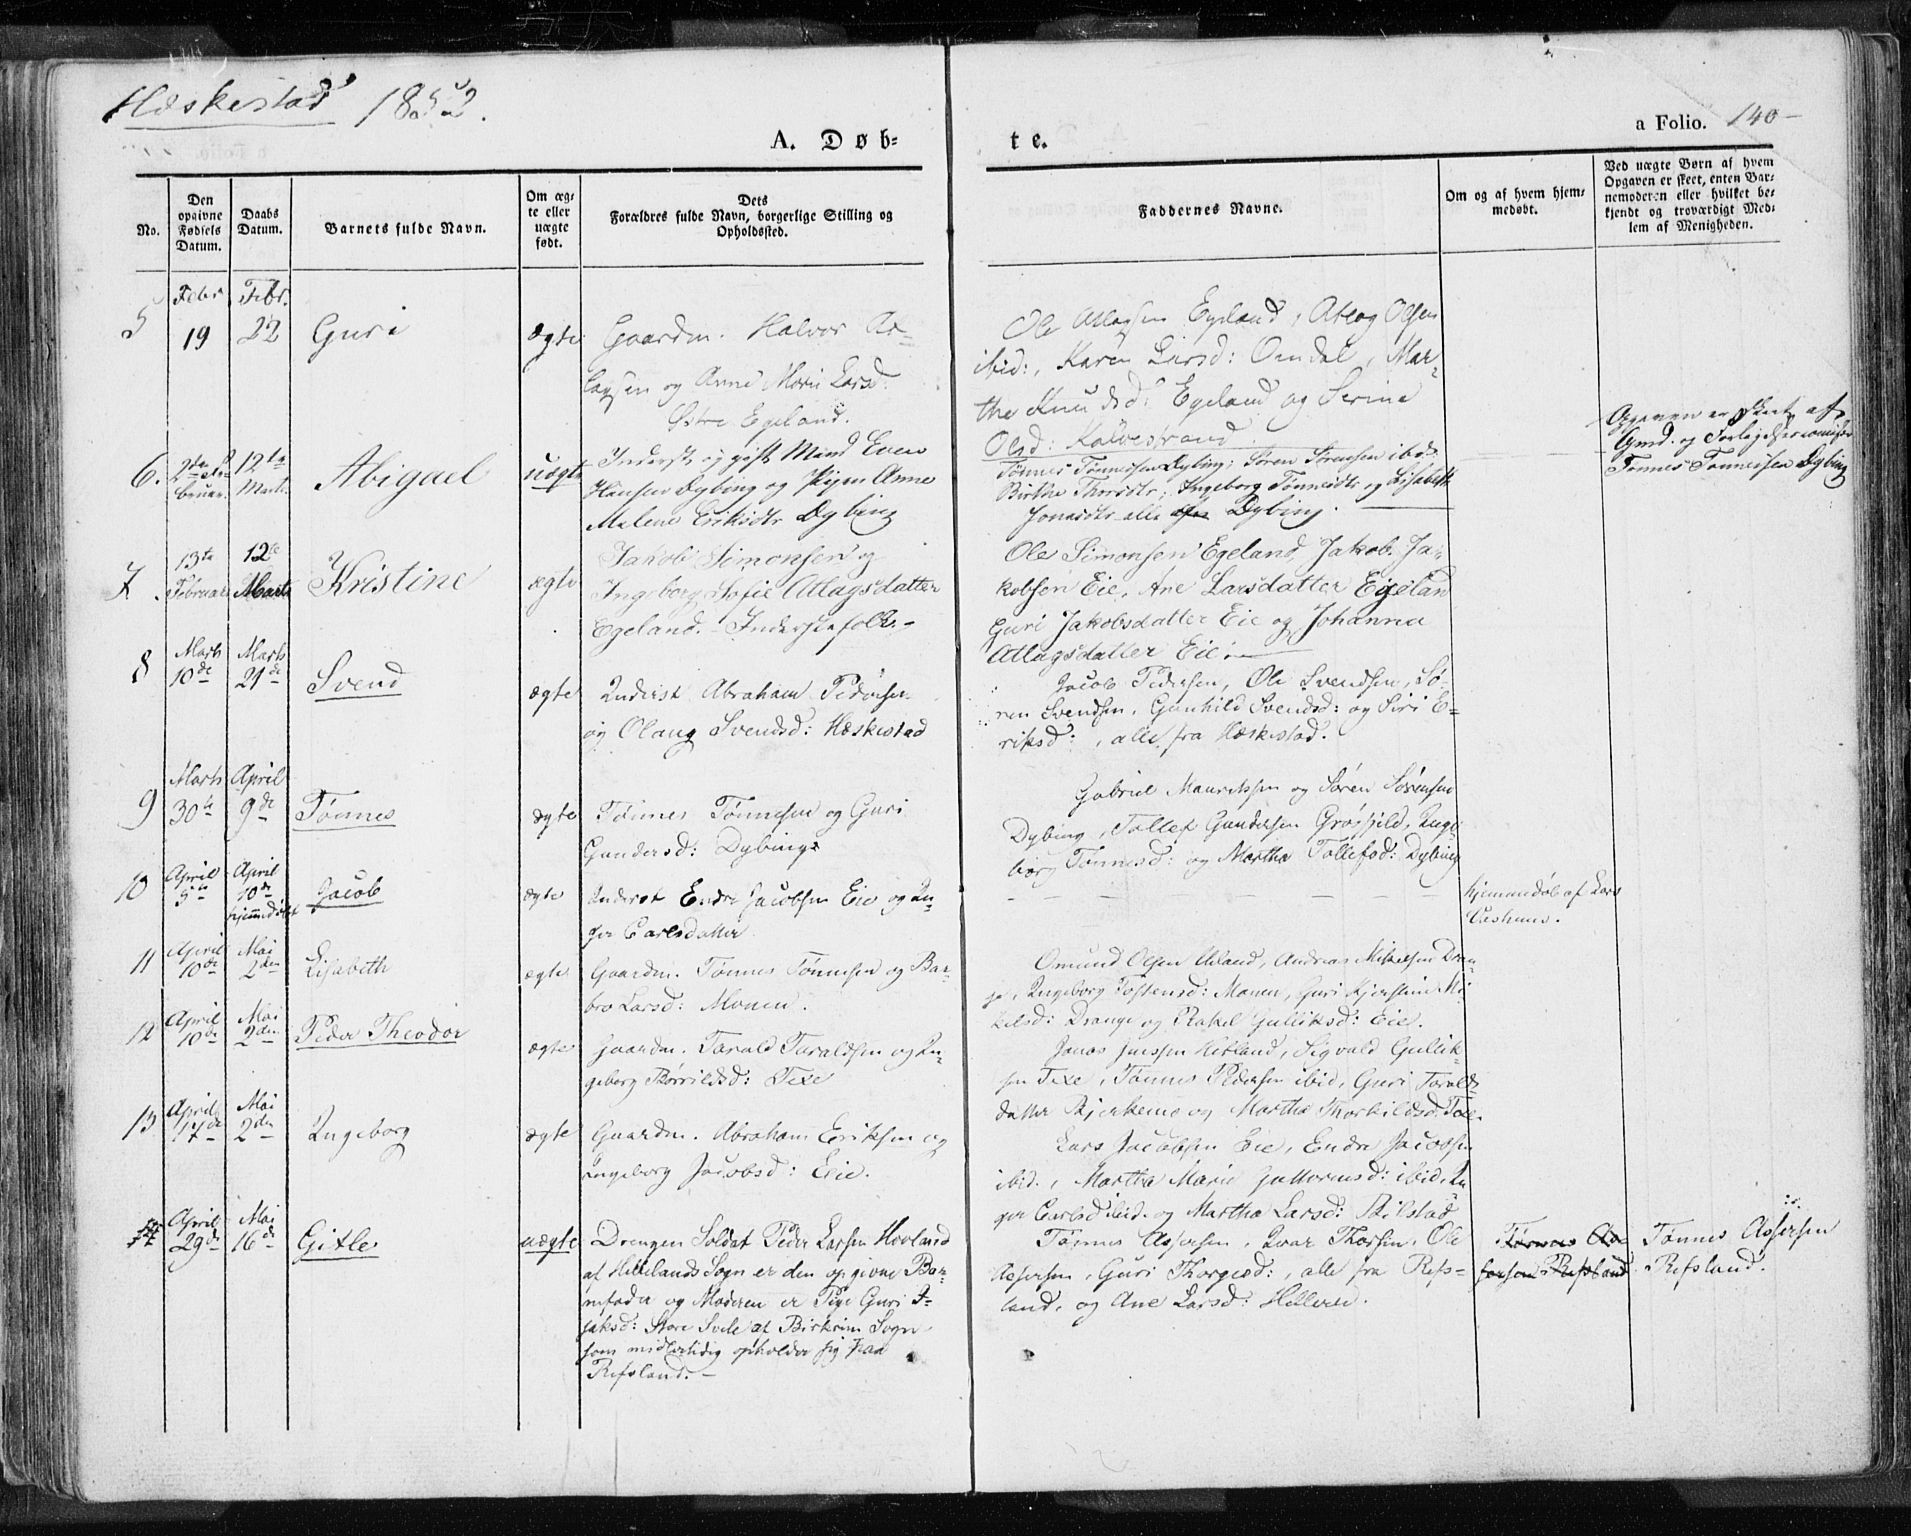 Hæskestad 1852.
A. Døb-
te.
a Folio. 140-
No.
Den opgivne Fødsels Datum.
Daabs Datum.
Barnets fulde Navn.
Om ægte eller uægte født.
Dets Forældres fulde Navn, borgerlige Stilling og Opholdssted.
Faddernes Navne.
Om og af hvem hjemmedøbt.
Ved uægte Børn af hvem Opgaven er skeet, enten Barnemoderen eller hvilket bekjendt og troværdigt Medlem af Menigheden.
5 Febr 19 Febr. 22 Guri ægte Gaardm. Halvor At-
lagsen og Anne Marie Larsd:
Østre Egeland.
Ole Atlagsen Egeland, Atlag Olsen
ibid:, Karen Larsd: Omdal, Mar-
the Knudsd: Egeland og Serine
Olsd: Kalvestrand.
6. 2den Februar. 12te Marts. Abigael uægte Inderst og gift Mand Even
Hansen Dybing og Pigen Anne
Malene Eriksdtr Dybing
Tønnes Tønnesen Dybing; Søren Sørensen ibd:
Birthe Thorsdtr; Ingeborg Tønnesdtr og Lisabeth
Jonasdtr alle Dybing.
Opgaven er skeet af
Gmd. og Forligelsescommisær
Tønnes Tønnesen Dybing
7. 13te Februar 12te Marts Kristine ægte Jakob Simonsen og
Ingeborg Sofie Atlagsdatter
Egeland. - Inderstefolk. -
Ole Simonsen Egeland, Jakob Ja-
kobsen Eie, Ane Larsdatter Egelan
Guri Jakobsdatter Eie og Johanna
Atlagsdatter Eie. -
8 Marts 10de Marts 21de Svend ægte Inderst Abraham Pedersen
og Olaug Svendsd: Hæskestad
Jacob Pedersen, Ole Svendsen, Sø-
ren Svendsen, Gunhild Svendsd: og Siri E-
riksd:, alle fra Hæskestad.
9 Marts 30te April 9de Tønnes ægte Tønnes Tønnesen og Guri
Gundersd: Dybing
Gabriel Mauritsen og Søren Sørensen
Dybing, Tollef Gundersen Grøsfjeld, Inge-
borg Tønnesd: og Martha Tollefsd: Dybing
10 April 5te April 10de hjemmedøbt Jacob ægte Inderst Endre Jacobsen Eie og In-
ger Carlsdatter
- - - - - - - -
hjemmedøbt af Lars
11 April 10de Mai 2den Lisabeth ægte Gaardm. Tønnes Tønnesen og Bar-
bro Larsd: Monen.
Omund Olsen Aaland, Andreas Mikkelsen Dran-
ge, Ingeborg Tostensd: Monen, Guri Kjerstine Mi-
kelsd: Drange og Rakel Gulliksd: Eie.
12 April 10de Mai 2den Peder Theodor ægte Gaardm. Tarald Taraldsen og In-
geborg Thorkildsd: Texe
Jonas Jensen Hetland, Sigvald Gullik-
sen Texe, Tønnes Pedersen ibid, Guri Taralds-
datter Bjerkemo og Martha Thorkildsd: Texe.
13 April 17de Mai 2den Ingeborg ægte Gaardm. Abraham Eriksen og
Ingeborg Jacobsd: Eie.
Lars Jacobsen Eie, Endre Jacobsen
ibid., Martha Marie Guttormsd: ibid, In-
ger Carlsd ibid. og Martha Larsd: Bilstad
14 April 29de Mai 16de Gitle uægte Drengen Soldat Peder Larsen Hovland
af Hellelands Sogn er den opgivne Bar-
nefader og Moderen er Pige Guri I-
saksd: Store Svele af Birkrim Sogn
som midlertidig opholder sig paa
Refsland. -
Tønnes Assersen, Ivar Thorsen, Ole
Assersen, Guri Thorgesd:, alle fra Refs-
land, og Ane Larsd: Helleren.
Tønnes As-
sersen Refsland
Tønnes Assersen
Refsland.